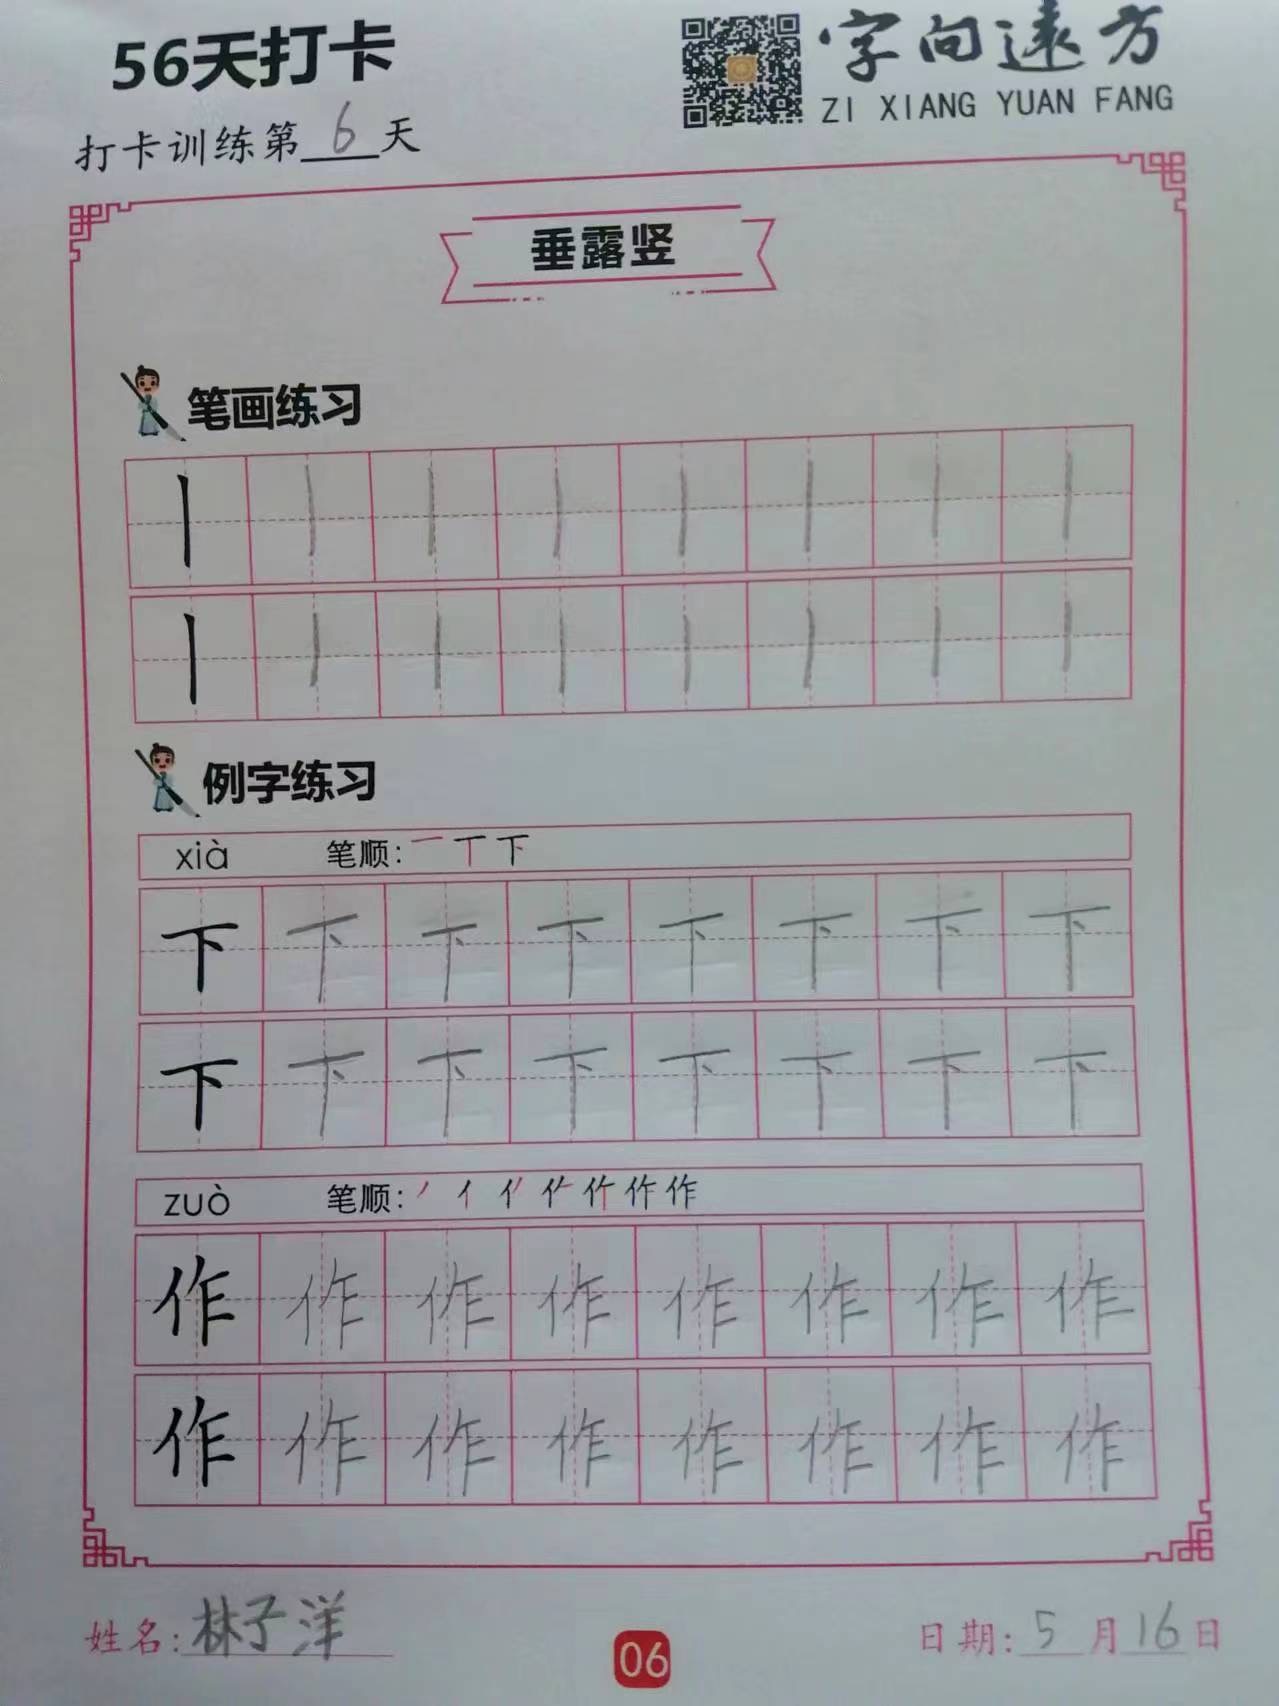 56天打卡
字向远方
ZI XIANG YUAN FANG
打卡训练第6天
垂露竖
笔画练习
丨丨丨丨丨丨丨丨
丨丨丨丨丨丨丨丨
例字练习
xià 笔顺: 一丅下
下下下下下下下下
下下下下下下下下
zuò 笔顺: 丿亻作
作作作作作作作作
作作作作作作作作
姓名:林子洋
06
日期:5月16日